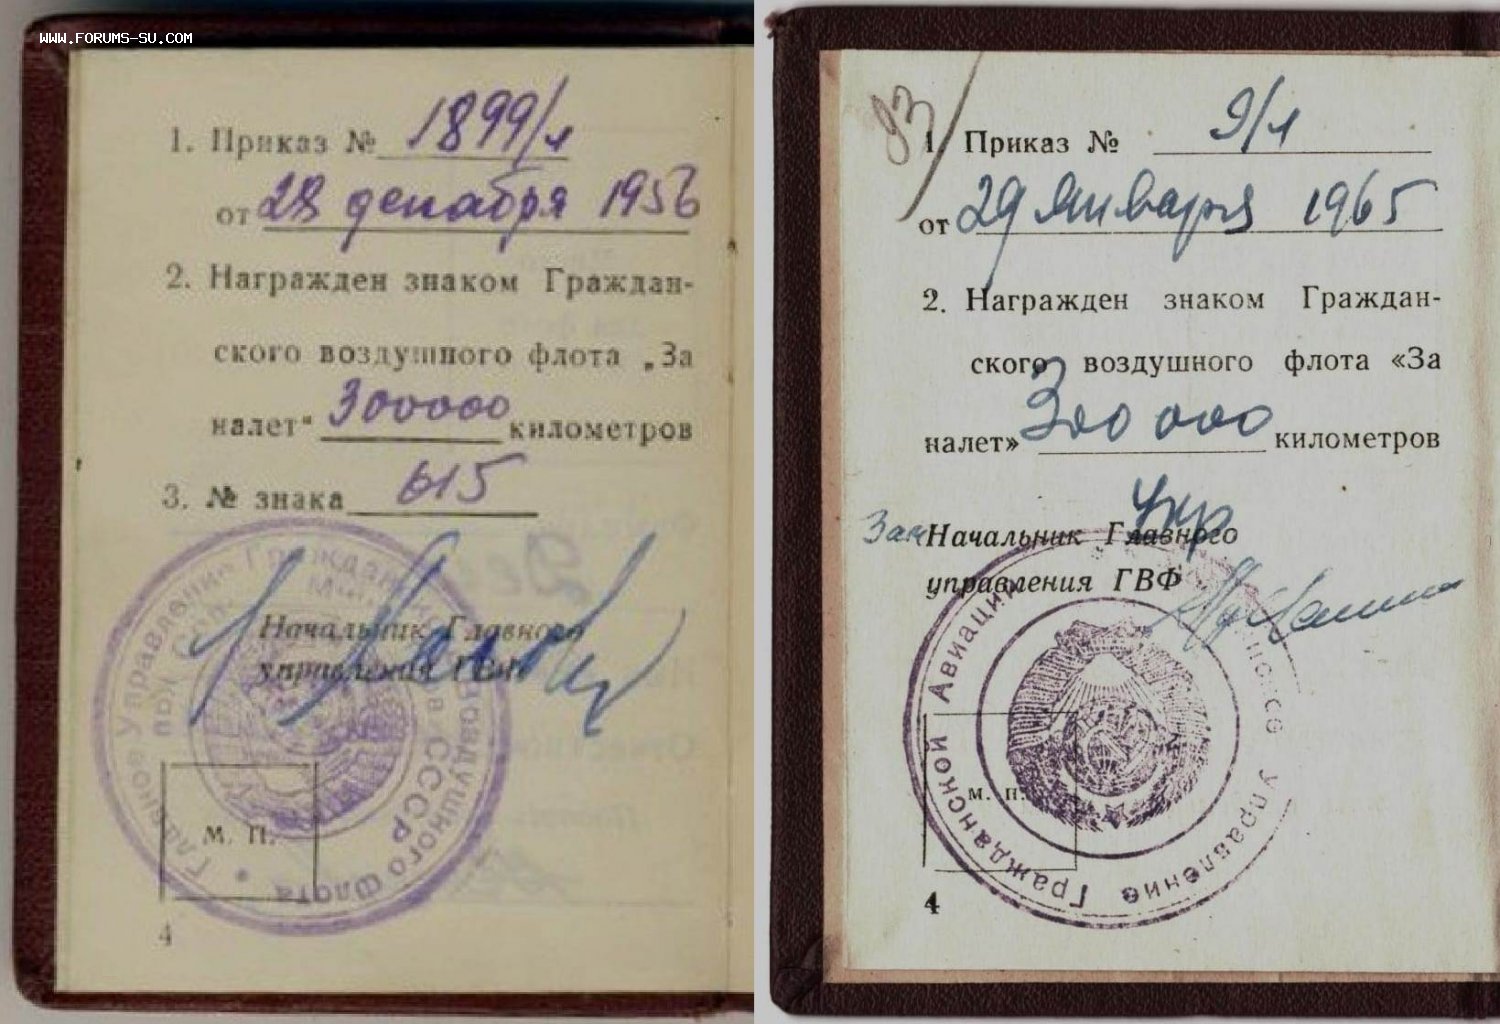 WWW.FORUMS-SU.COM
1. Приказ № 1899/л
от 28 декабря 1956
2. Награжден знаком Граждан-
ского воздушного флота „За
налет“ 300000 километров
3. № знака 615
Начальник Главного
управления ГВФ
Главное Управление Гражданского Воздушного Флота
СССР
М. П.
4
93
1. Приказ № 9/л
от 29 января 1965
2. Награжден знаком Граждан-
ского воздушного флота «За
налет» 300 000 километров
Зам Начальник Главного Укр
управления ГВФ
Управление Гражданской Авиации
м. п.
4